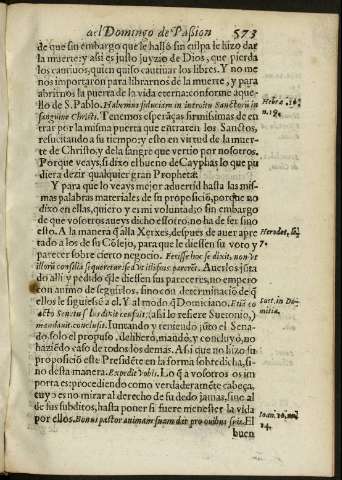 del Domingo de Passion 573
de que sin embargo que le hallò sin culpa le hizo dar
la muerte: y assi es justo juyzio de Dios, que pierda
los cautiuos, quien quiso cautiuar los libres. Y no me
nos importaron para librarnos de la muerte, y para
abrirnos la puerta de la vida eterna: conforme aque-
llo de S. Pablo. Habemus fiduciam in introitu Sanctorũ in
sanguine Christi. Tenemos esperãças firmissimas de en
trar por la misma puerta que entraren los Sanctos,
resucitando a su tiempo: y esto en virtud de la muer-
te de Christo, y de la sangre que vertio por nosotros.
Porque veays, si dixo el bueno de Cayphas lo que pu
diera dezir qualquier gran Propheta!
Y para que lo veays mejor aduertid hasta las mis-
mas palabras materiales de su proposiciõ, porque no
dixo en ellas, quiero y es mi voluntad: sin embargo
de que vosotros aueys dicho essotro, no ha de ser sino
esto. A la manera q̃ alla Xerxes, despues de auer apre
tado a los de su Cõsejo, para que le diessen su voto y
parecer sobre cierto negocio.
do alli y pedido q̃ le diessen sus pareceres, no empe
con animo de seguirlos, sino con determinacion de q̃
ellos le siguiessẽ a el. Y al modo q̃ Domiciano.
(assi lo refiere Suetonio,)
mandauit, conclusit. Iuntando y teniendo jũto el Sena-
do, solo el propuso, deliberò, mandò, y concluyò, no
haziẽdo caso de todos los demas. Assi que no hizo su
proposiciõ este Presidẽte en la forma sobredicha, si-
no desta manera. Expedit vobis. Lo q̃ a vosotros os im
porta es: procediendo como verdaderamẽte cabeça,
cuyo es no mirar al derecho de su dedo jamas, sino al
de sus subditos, hasta poner si fuere menester la vida
por ellos. Bonus pastor animam suam dat pro ouibus suis. El
buen
Hebr. 10.
n. 19.
Herodot. li.
7.
Suet. in Do-
mitia.
Ioan. 10.